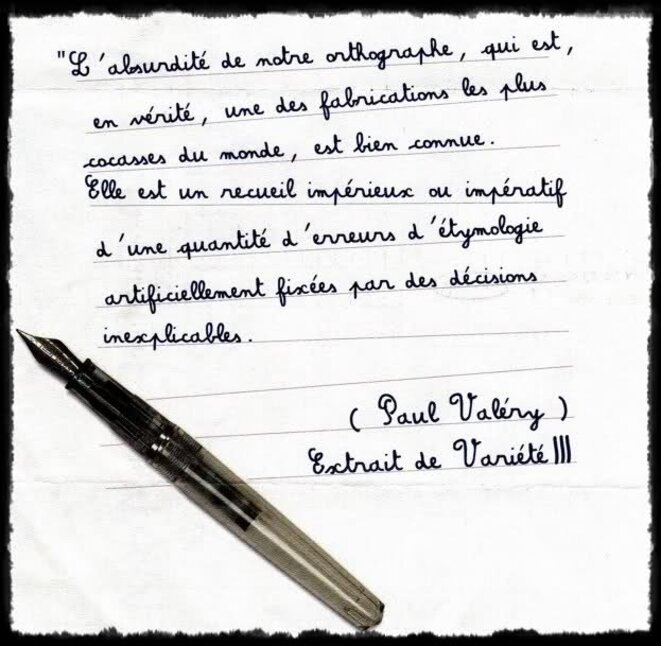 "L'absurdité de notre orthographe, qui est,
en vérité, une des fabrications les plus
cocasses du monde, est bien connue.
Elle est un recueil impérieux ou impératif
d'une quantité d'erreurs d'étymologie
artificiellement fixées par des décisions
inexplicables.
( Paul Valéry )
Extrait de Variété III